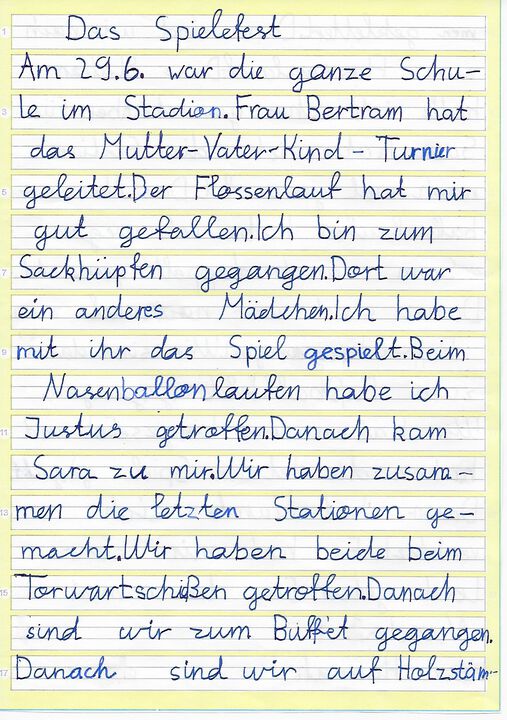 Das Spielefest
Am 29.6. war die ganze Schu-
le im Stadion. Frau Bertram hat
das Mutter-Vater-Kind-Turnier
geleitet. Der Flossenlauf hat mir
gut gefallen. Ich bin zum
Sackhüpfen gegangen. Dort war
ein anderes Mädchen. Ich habe
mit ihr das Spiel gespielt. Beim
Nasenballonlaufen habe ich
Justus getroffen. Danach kam
Sara zu mir. Wir haben zusam-
men die letzten Stationen ge-
macht. Wir haben beide beim
Torwartschißen getroffen. Danach
sind wir zum Büffet gegangen.
Danach sind wir auf Holzstäm-